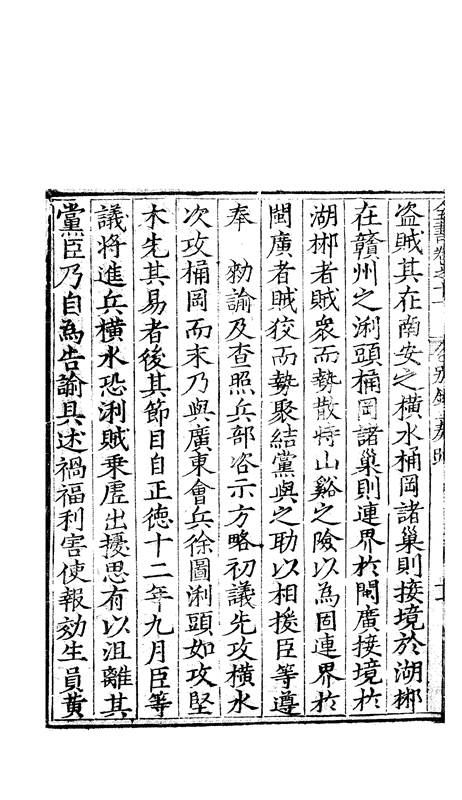 盗賊其在南安之横水桶岡諸巢則接境於湖郴
在贛州之浰頭桶岡諸巢則連界於閩廣接境於
湖郴者賊衆而勢散恃山谿之險以為固連界於
閩廣者賊狡而勢聚結黨與之助以相援臣等遵
奉　勑諭及查照兵部咨示方略初議先攻横水
次攻桶岡而末乃與廣東會兵徐圖浰頭如攻堅
木先其易者後其節目自正德十二年九月臣等
議將進兵横水恐浰賊乗虚出擾思有以沮離其
黨臣乃自為告諭具述禍福利害使報効生員黄